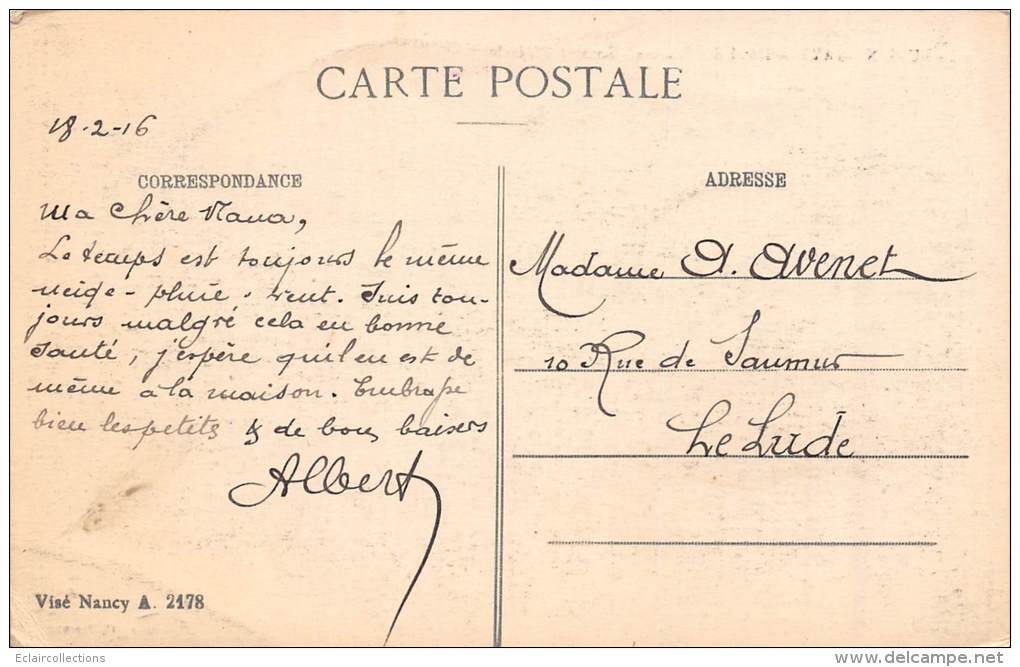 CARTE POSTALE
18-2-16
CORRESPONDANCE
Ma Chère
Le temps est toujours le même
neige - pluie - vent. Suis tou-
jours malgré cela en bonne
santé, j'espère qu'il en est de
même à la maison. Embrasse
bien les petits & de bons baisers
Albert
Visé Nancy A. 2178
ADRESSE
Madame A. Avenet
10 Rue de Saumur
Le Lude
Eclaircollections
www.delcampe.net